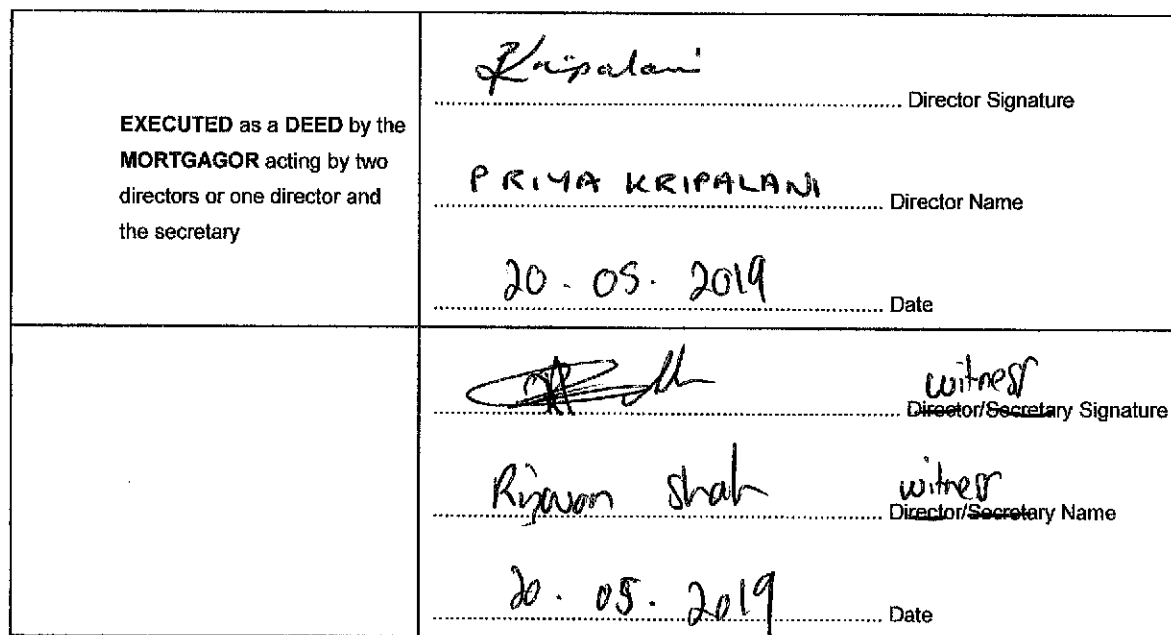 EXECUTED as a DEED by the
MORTGAGOR acting by two
directors or one director and
the secretary
Kripalani
Director Signature
PRIYA KRIPALANI
Director Name
20 . 05 . 2019
Date
witness
Director/Secretary Signature
Rizwan Shah
witness
Director/Secretary Name
20 . 05 . 2019
Date